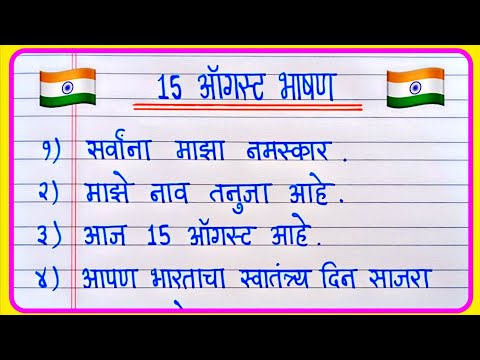 15 ऑगस्ट भाषण
१) सर्वांना माझा नमस्कार .
२) माझे नाव तनुजा आहे .
३) आज 15 ऑगस्ट आहे .
४) आपण भारताचा स्वातंत्र्य दिन साजरा